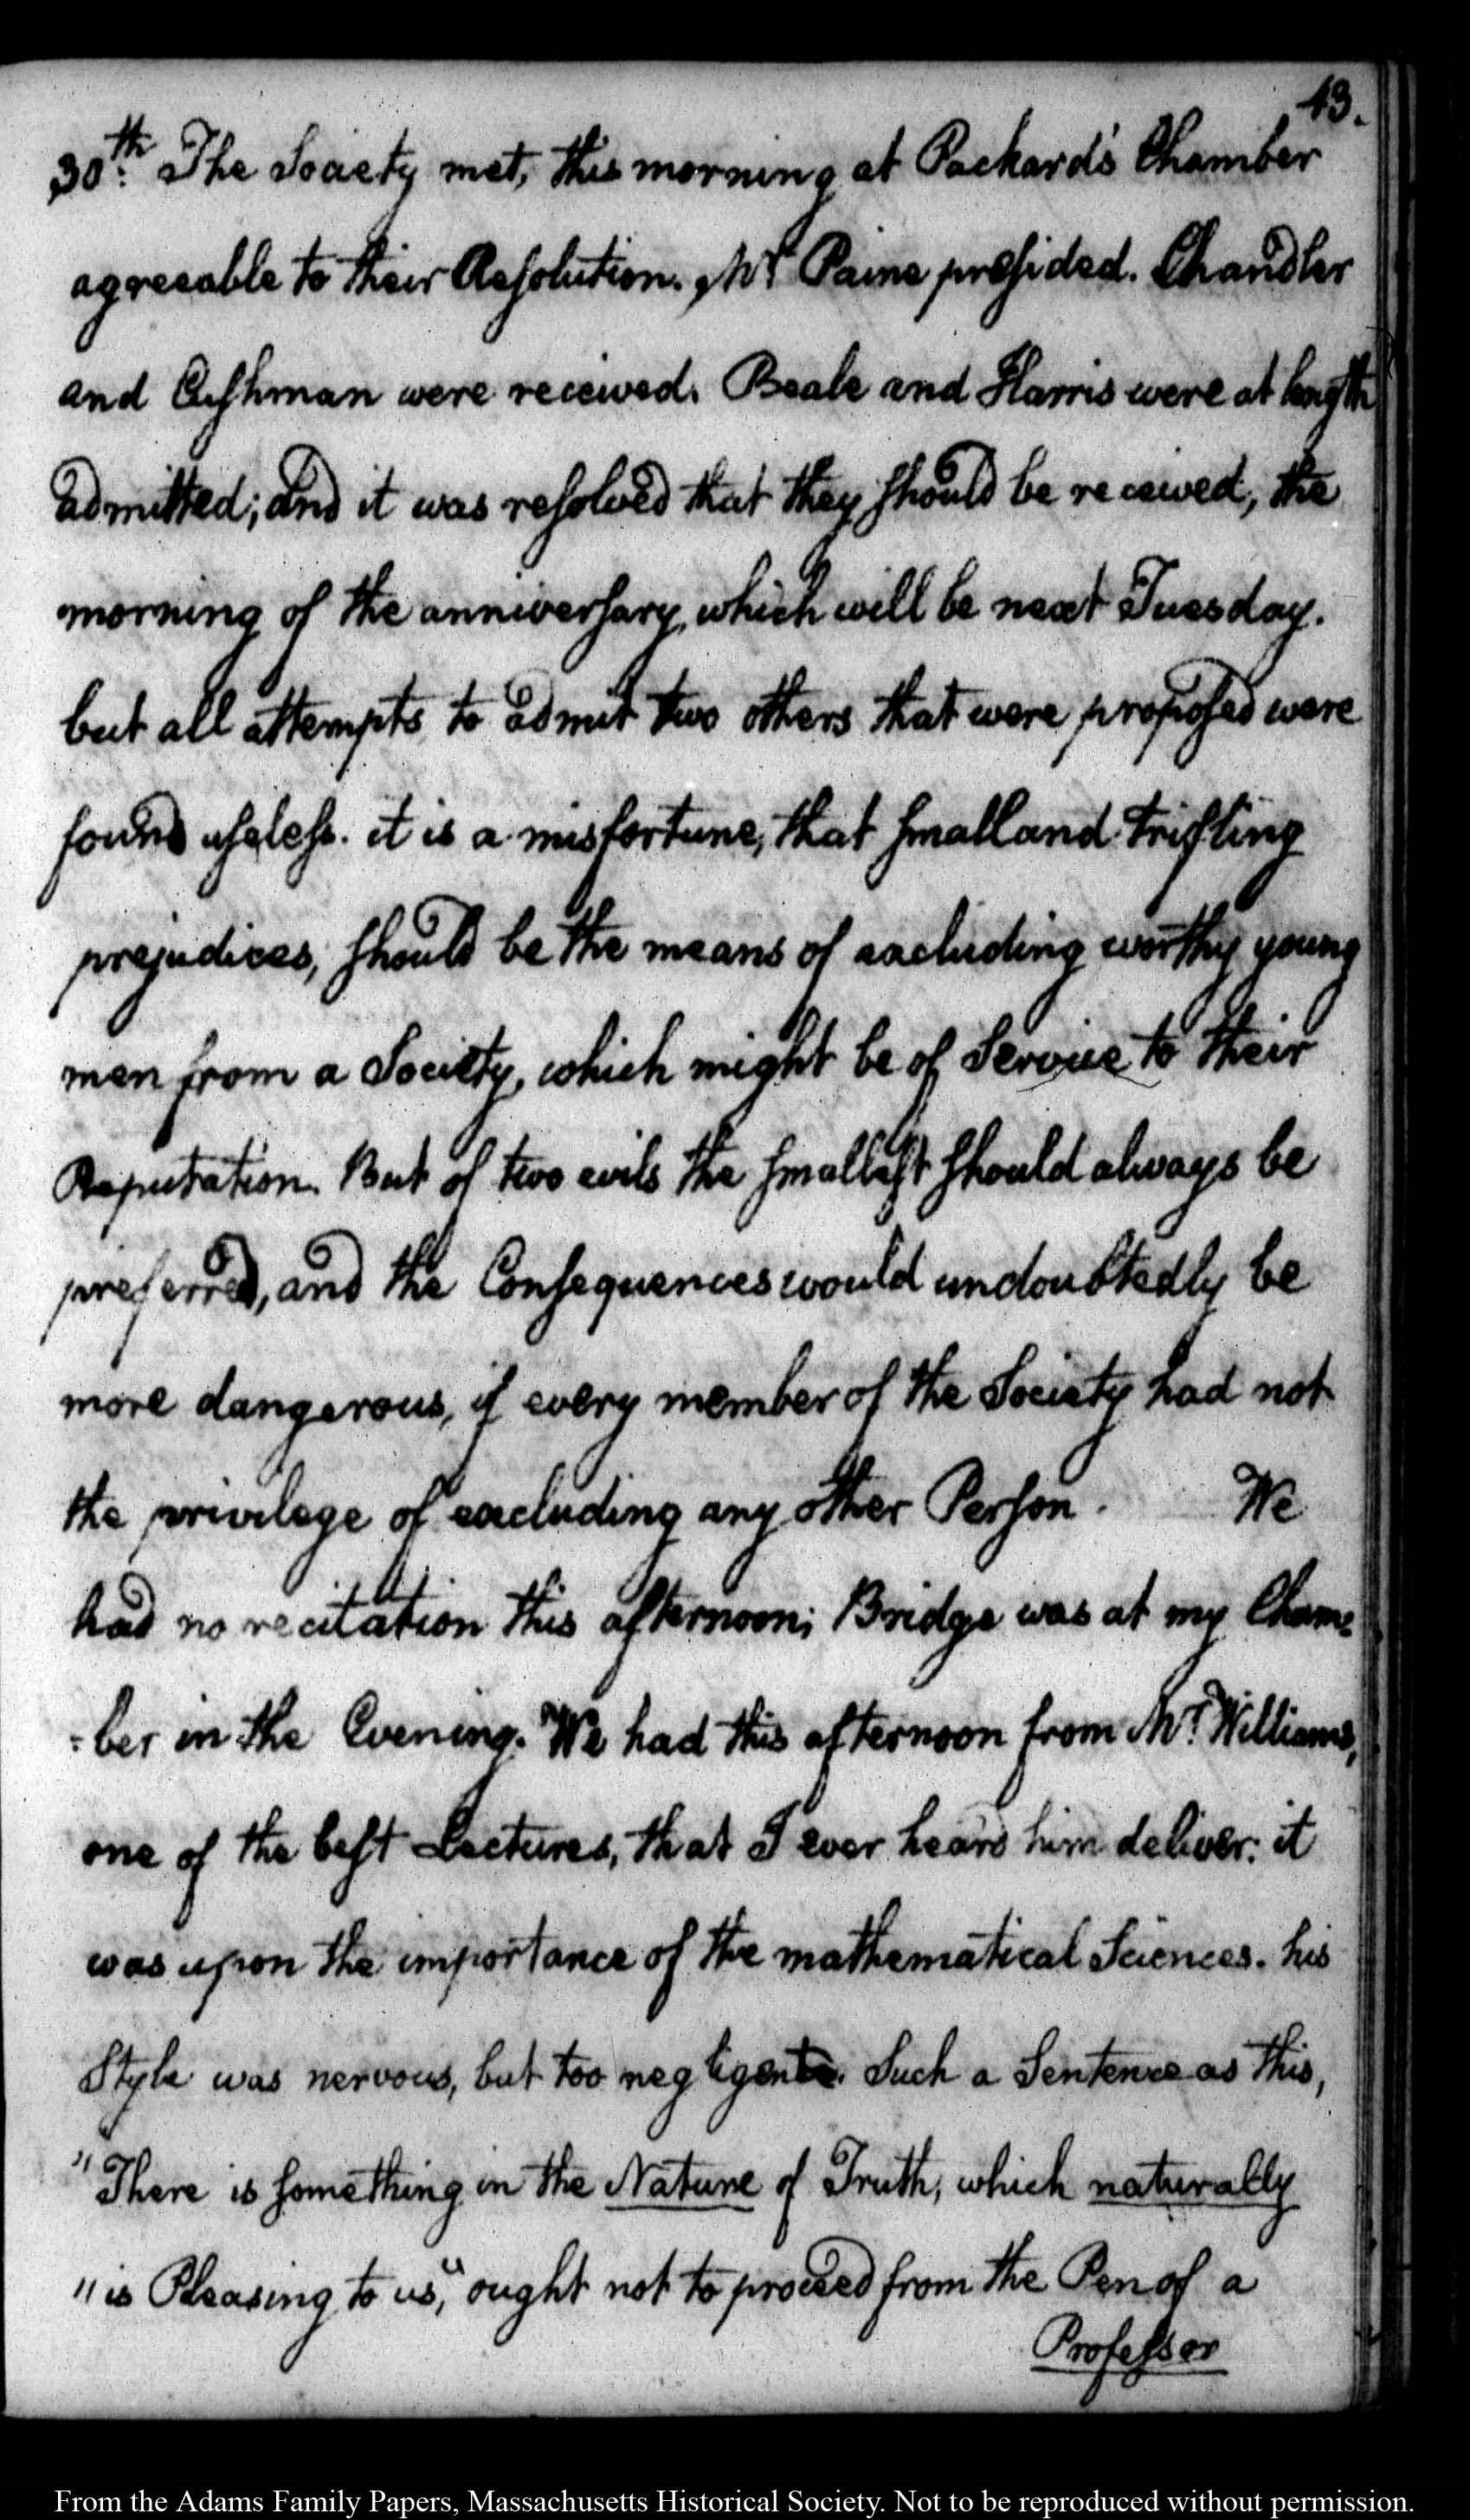 13.
30th: The Society met, this morning at Packard's Chamber
agreeable to their Resolution. Mr Paine presided. Chandler
and Cushman were received. Beale and Harris were at length
admitted; and it was resolved that they should be received, the
morning of the anniversary, which will be next Tuesday.
but all attempts to admit two others that were proposed were
found useless. it is a misfortune, that small and trifling
prejudices, should be the means of excluding worthy young
men from a Society, which might be of Service to their
Reputation. But of two evils the smallest should always be
preferred, and the Consequences would undoubtedly be
more dangerous, if every member of the Society had not
the privilege of excluding any other Person. We
had no recitation this afternoon; Bridge was at my Cham=
=ber in the Evening. We had this afternoon from Mr. Williams,
one of the best Lectures, that I ever heard him deliver: it
was upon the importance of the mathematical Sciences. his
Style was nervous, but too negligent. Such a Sentence as this,
"There is something in the Nature of Truth, which naturally
"is Pleasing to us," ought not to proceed from the Pen of a
Professor
From the Adams Family Papers, Massachusetts Historical Society. Not to be reproduced without permission.